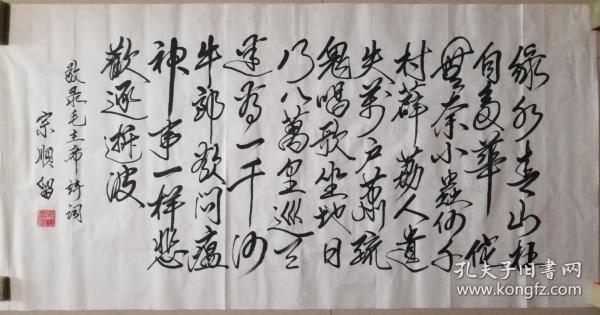 绿水青山枉
自多華佗
無奈小蟲何千
村薜荔人遺
矢萬戶蕭疏
鬼唱歌坐地日
行八萬里巡天
遥看一千河
牛郎欲問瘟
神事一样悲
歡逐逝波
敬录毛主席诗词
宗順留
孔夫子旧书网
www.kongfz.com